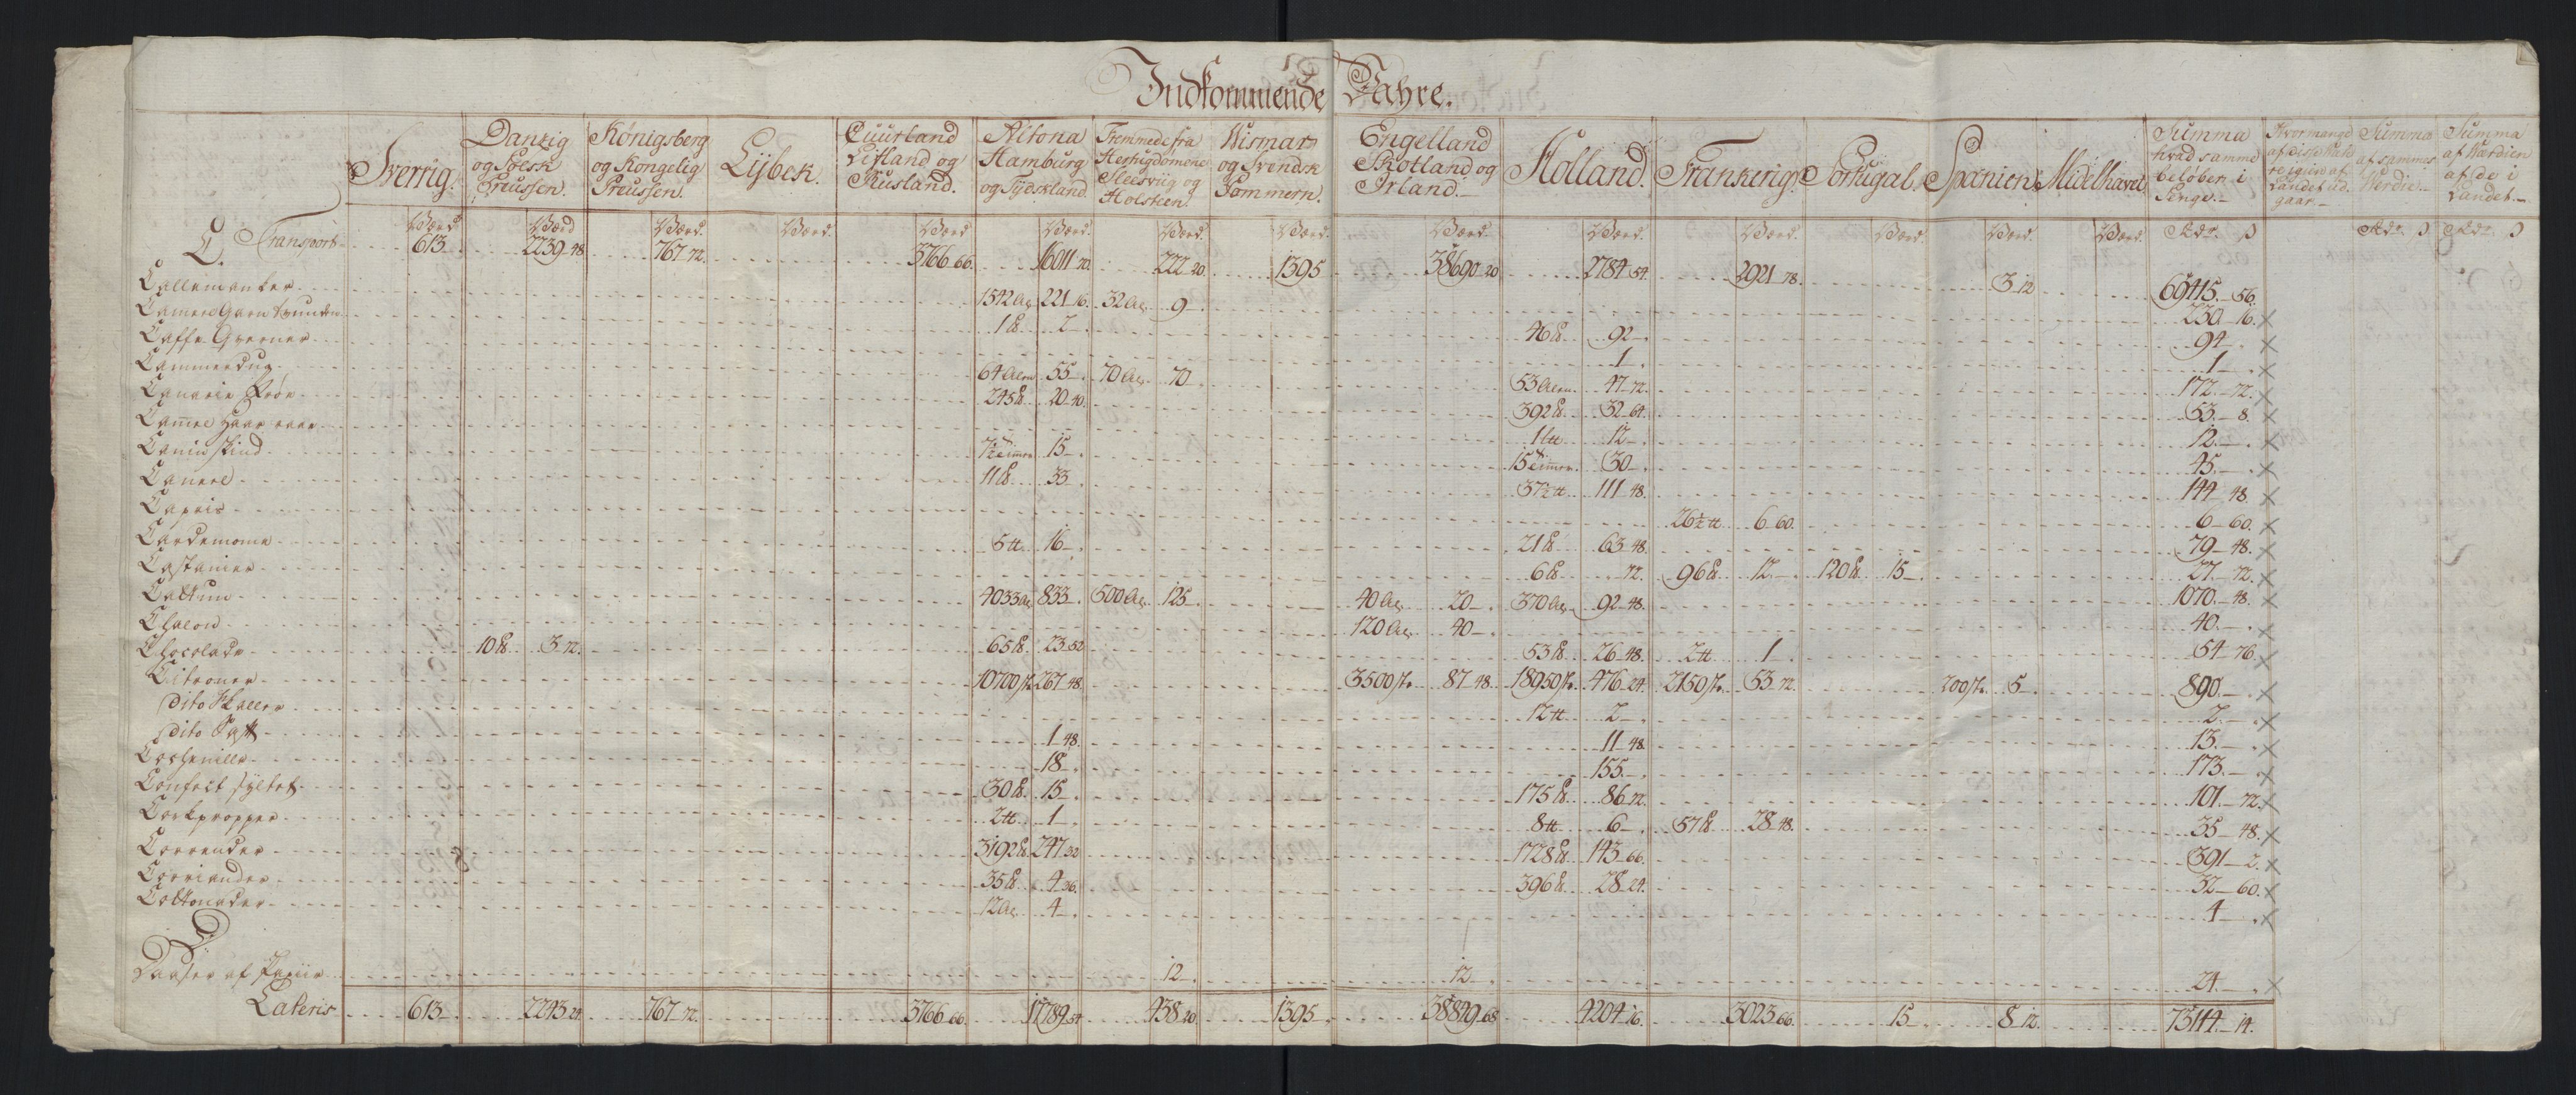 Indkommende Vahre.
Sverrig. Danzig og Polsk Preussen. Königsberg og Kongelig Preussen. Lybek. Cuurland Lifland og Rusland. Altona Hamburg og Tydskland. Fremmede fra Hertugdømene Slesviig og Holsteen. Wismar og Svendsk Pommern. Engelland Skotland og Irland. Holland. Frankerig. Portugal. Spanien. Midelhavet. Summa hvad samme beløber i Penge. Hvormange af disse Vahr resqiurs af Landet ud gaar Summa af sammes Verdie Summa af Værdien af de i Landet.
Værd. Værd Værd. Værd. Værd. Værd. Værd. Værd. Værd. Værd. Værd. Værd. Værd. Værd. Rdr. β Rdr. β Rdr. β
C. Transport 613 2239 48 767 72. 3766 66. 16011 20. 222 20. 1395 38690 20 2784 54. 2921 78. 3 12 69415 56.
Callemanker 1542 Al. 221 16. 32 Al. 9 230 16. x
Cameel Garn spunden 1 lb 2 46 lb 92 94 x
Caffe Qverner 1 1 x
Cammerdug 64 Alen 55 70 Al. 70 53 Alen 47 72. 172 72. x
Canarie Frøe 245 lb 20 40. 392 lb 32 64. 53 8. x
Cameel Haar 1 lb 12 12 x
Canin skind 7½ Zimmer 15 15 Zimmer 30 45 x
Caneel 11 lb 33 37½ lb 111 48. 144 48 x
Capris 26½ lb 6 60. 6 60. x
Cardemome 5 lb 16 21 lb 63 48. 79 48. x
Castanier 6 lb 72. 96 lb 12 120 lb 15 27 72. x
Cattun 4033 Al. 833 500 Al. 125 40 Al. 20 370 Al. 92 48. 1070 48. x
Chalon 120 Al. 40 40 x
Chocolade 10 lb 3 72. 65 lb 23 52 53 lb 26 48. 2 lb 1 54 76. x
Citroner 10700 st. 267 48. 3500 st. 87 48. 18950 st. 476 24. 2150 st. 53 72. 200 st. 5 890 x
dito Skaller 12 lb 2 2 x
dito Saft 1 48. 11 48 13 x
Coschenille 18 155 173 x
Confect syltet 30 lb 15 175 lb 86 72. 101 72. x
Corkpropper 2 lb 1 8 lb 6 57 lb 28 48. 35 48. x
Corrender 3192 lb 247 32 1728 lb 143 66. 391 2. x
Corriander 35 lb 4 36. 396 lb 28 24. 32 60. x
Cottonader 12 Al. 4 4 x
D.
Daaser af Papiir 12 12 24 x
Lateris 613 2243 24. 767 72. 3766 66. 17789 54 438 20 1395 38849 68 4204 16. 3023 66. 15 8 12. 73114 14.